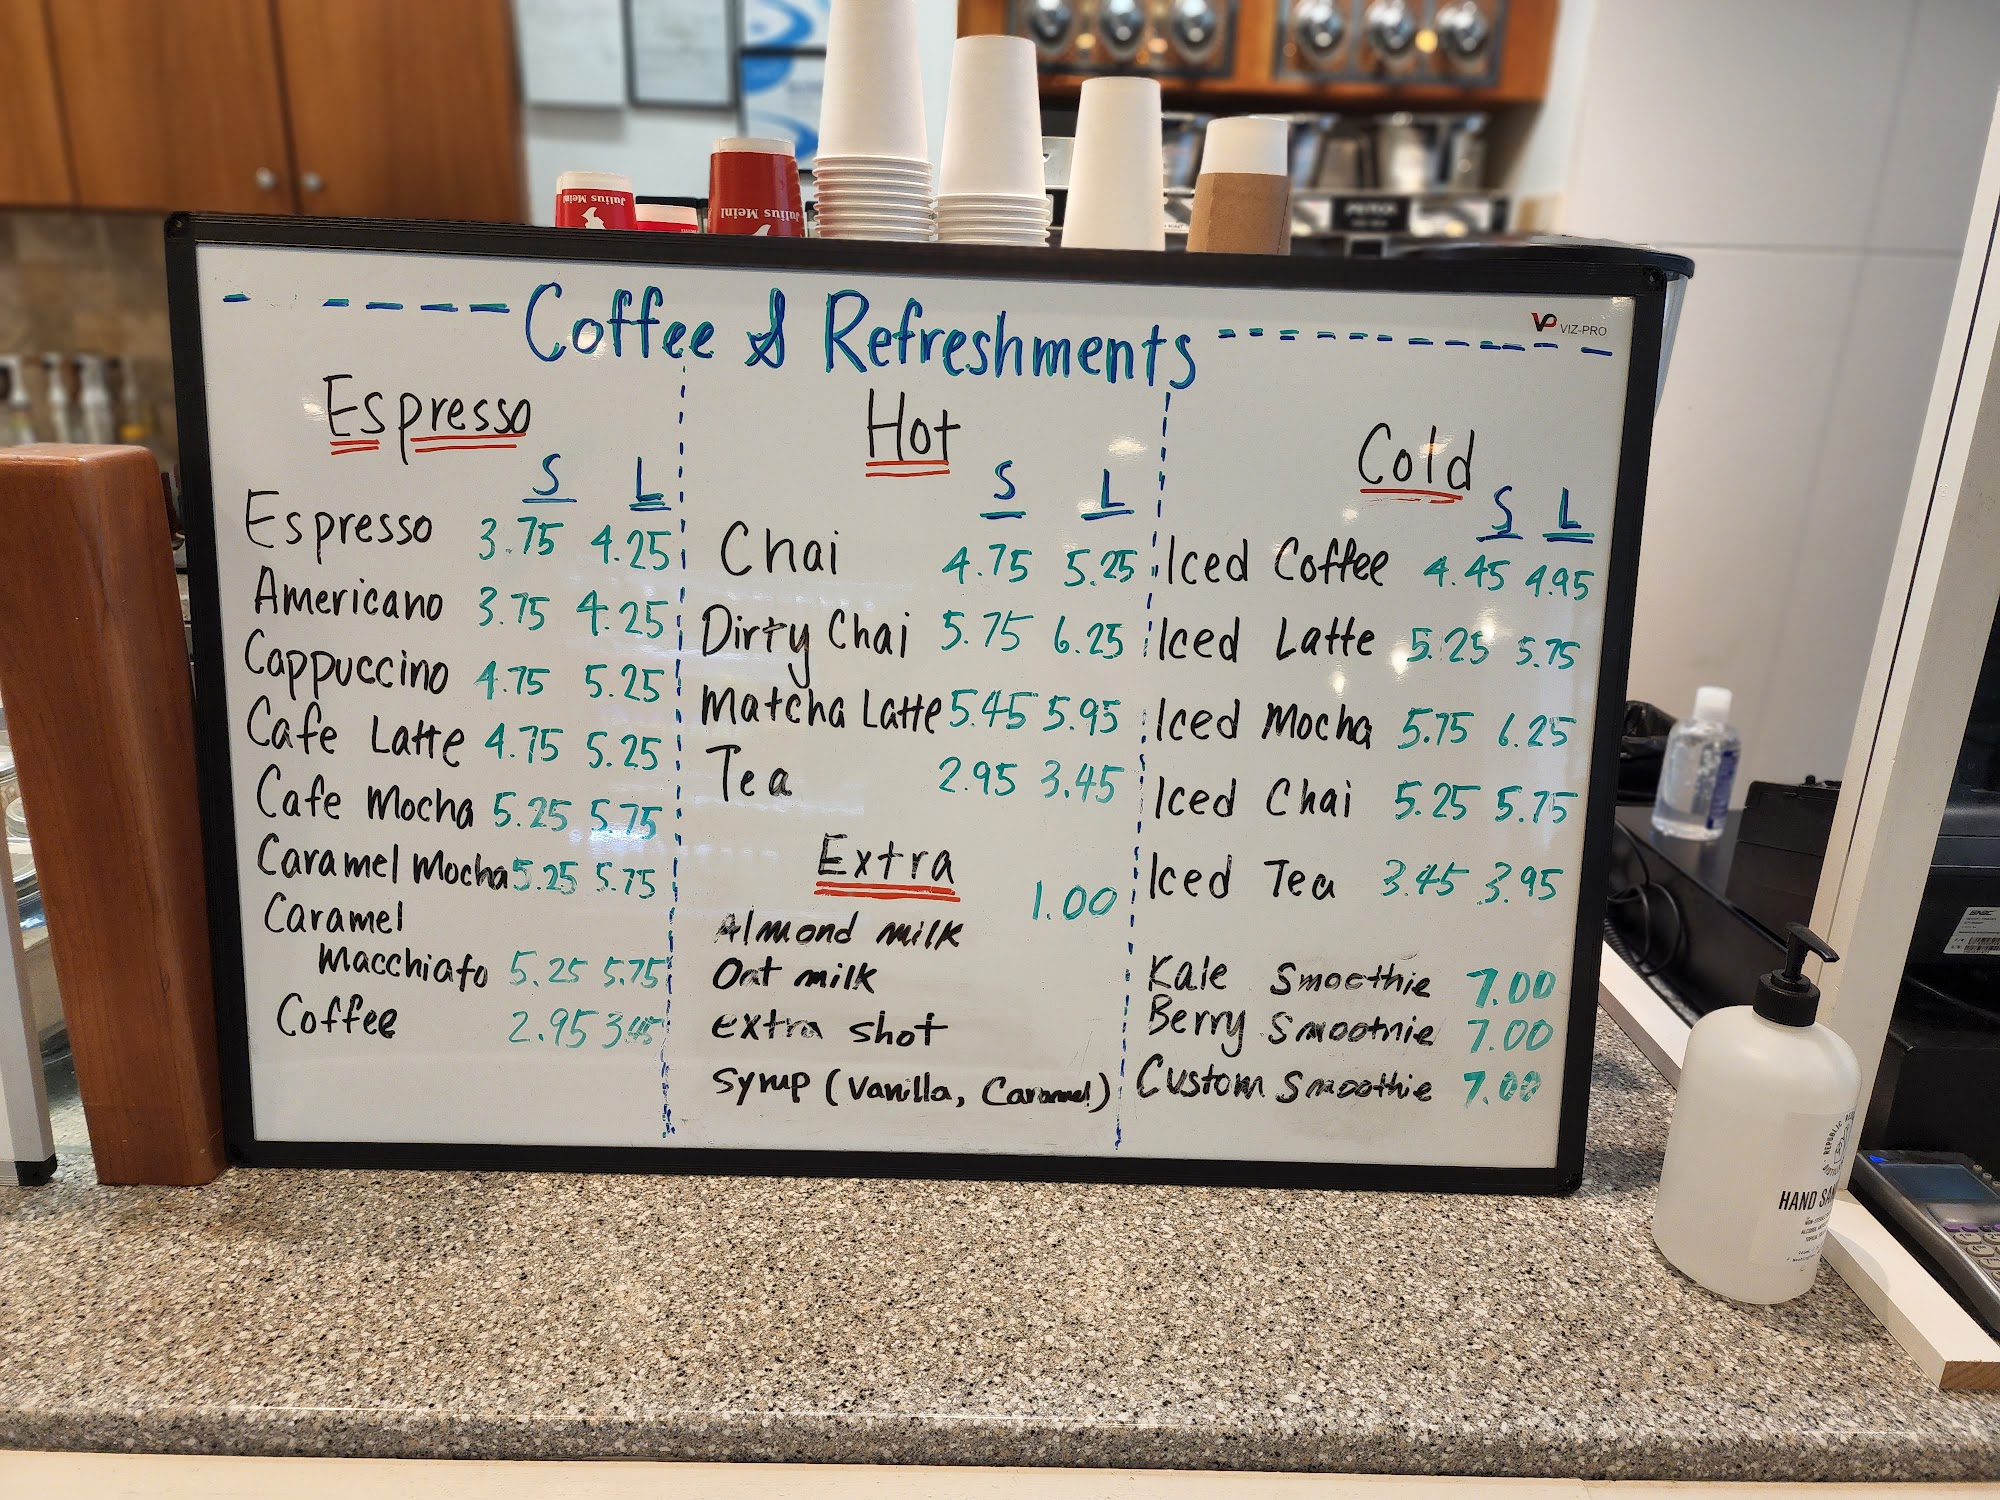 Julius Meinl
Julius Meinl
Coffee & Refreshments
VP VIZ-PRO
Espresso
S L
Espresso 3.75 4.25
Americano 3.75 4.25
Cappuccino 4.75 5.25
Cafe Latte 4.75 5.25
Cafe Mocha 5.25 5.75
Caramel Mocha 5.25 5.75
Caramel
Macchiato 5.25 5.75
Coffee 2.95 3.45
Hot
S L
Chai 4.75 5.25
Dirty Chai 5.75 6.25
Matcha Latte 5.45 5.95
Tea 2.95 3.45
Extra
1.00
Almond milk
Oat milk
extra shot
Syrup (Vanilla, Caramel)
Cold
S L
Iced Coffee 4.45 4.95
Iced Latte 5.25 5.75
Iced Mocha 5.75 6.25
Iced Chai 5.25 5.75
Iced Tea 3.45 3.95
Kale Smoothie 7.00
Berry Smoothie 7.00
Custom Smoothie 7.00
REPUBLIC
HAND